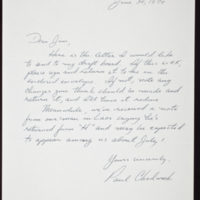 June 30, 1970
Dear Jim,
Here is the letter I would like
to send to my draft board. If this is ok,
please sign and return it to me in the
enclosed envelope. If not, note any
changes you think should be made and
return it, and I'll have it redone.
Meanwhile, we've received a note
from our man in Laos saying he's
retired from "it" and may be expected
to appear among us about July 1.
Yours sincerely,
Paul